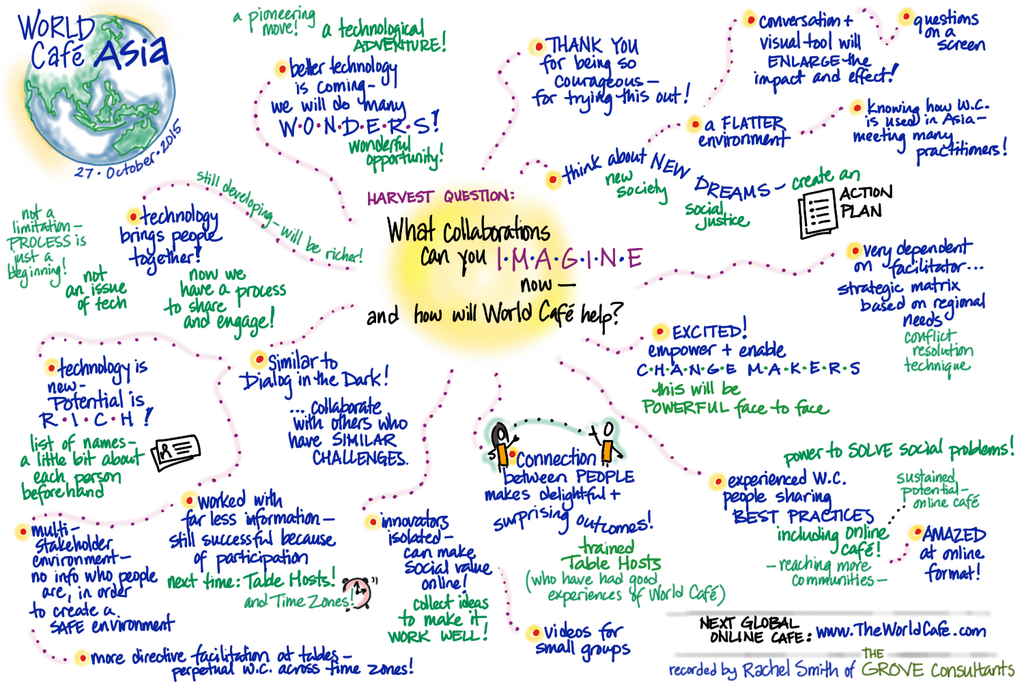 WORLD
Café Asia
27 · October · 2015
a pioneering
move!
a technological
ADVENTURE!
better technology
is coming—
we will do many
W·O·N·D·E·R·S!
wonderful
opportunity!
THANK YOU
for being so
courageous—
for trying this out!
conversation +
visual tool will
ENLARGE the
impact and effect!
questions
on a
screen
a FLATTER
environment
knowing how W.C.
is used in Asia—
meeting many
practitioners!
think about NEW DREAMS—
new
society
social
justice
create an
ACTION
PLAN
still developing — will be richer!
technology
brings people
together!
not a
limitation—
PROCESS is
just a
beginning!
not
an issue
of tech
now we
have a process
to share
and engage!
HARVEST QUESTION:
What collaborations
can you I·M·A·G·I·N·E
now —
and how will World Café help?
very dependent
on facilitator...
strategic matrix
based on regional
needs
conflict
resolution
technique
EXCITED!
empower + enable
C·H·A·N·G·E M·A·K·E·R·S
this will be
POWERFUL face to face
similar to
Dialog in the Dark!
... collaborate
with others who
have SIMILAR
CHALLENGES.
technology is
new—
Potential is
R·I·C·H!
list of names—
a little bit about
each person
beforehand
connection
between PEOPLE
makes delightful +
surprising outcomes!
trained
Table Hosts
(who have had good
experiences of World Café)
power to SOLVE social problems!
experienced W.C.
people sharing
BEST PRACTICES
including online
café!
— reaching more
communities —
sustained
potential—
online café
AMAZED
at online
format!
multi-
stakeholder
environment—
no info who people
are, in order
to create a
SAFE environment
worked with
far less information—
still successful because
of participation
next time: Table Hosts!
and Time Zones!
innovators
isolated—
can make
social value
online!
collect ideas
to make it
WORK WELL!
videos for
small groups
more directive facilitation at tables—
perpetual w.c. across time zones!
NEXT GLOBAL
ONLINE CAFE: www.TheWorldCafe.com
recorded by Rachel Smith of THE GROVE Consultants